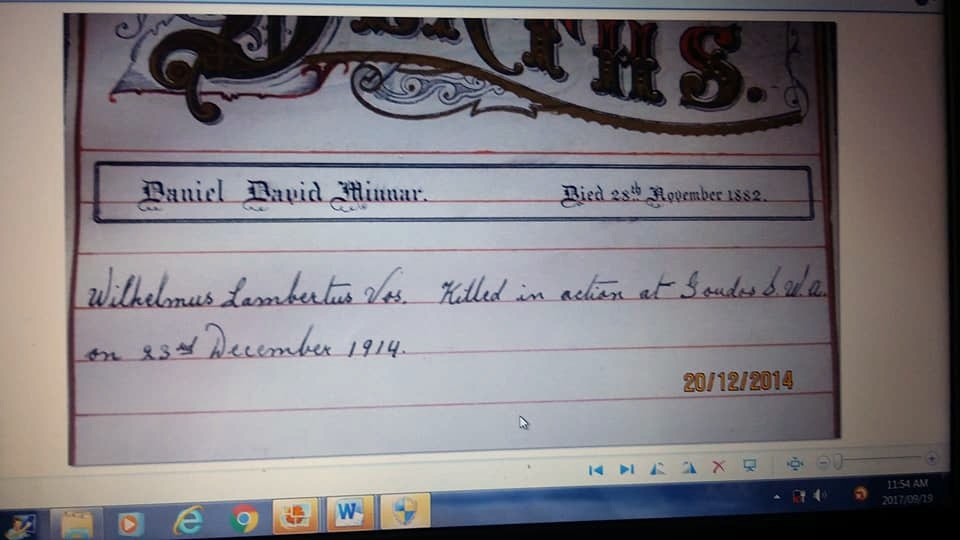 DEATHS.
Daniel David Minnar. Died 28th November 1882.
Wilhelmus Lambertus Vos. Killed in action at Goudos S.W.A.
on 23rd December 1914.
20/12/2014
11:54 AM
2017/09/19